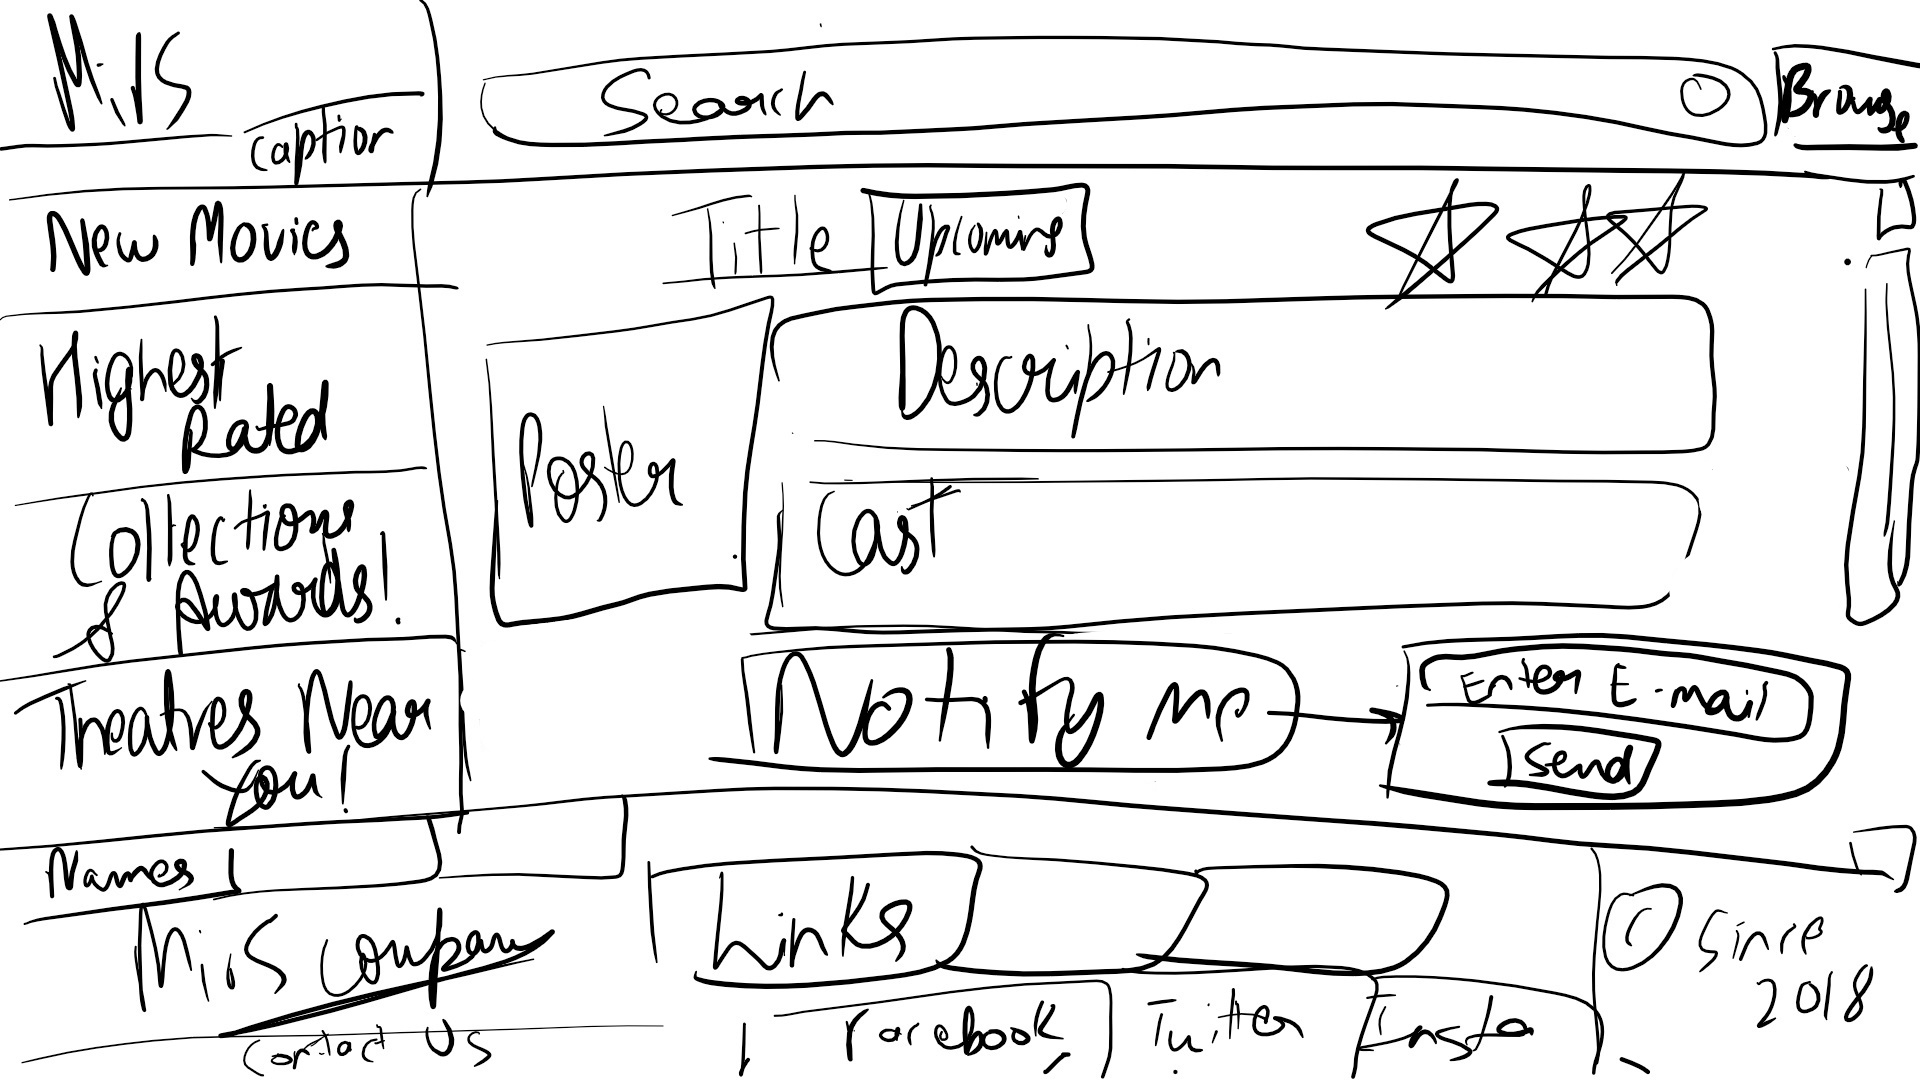 M.I.S
Caption
Search
Browse
New Movies
Highest
Rated
Collections
& Awards!
Theatres Near
You!
Title Upcoming
Description
Poster
Cast
Notify me
Enter E-mail
Send
Names
M.I.S company
Contact Us
Links
Facebook
Twitter
Insta
© Since
2018